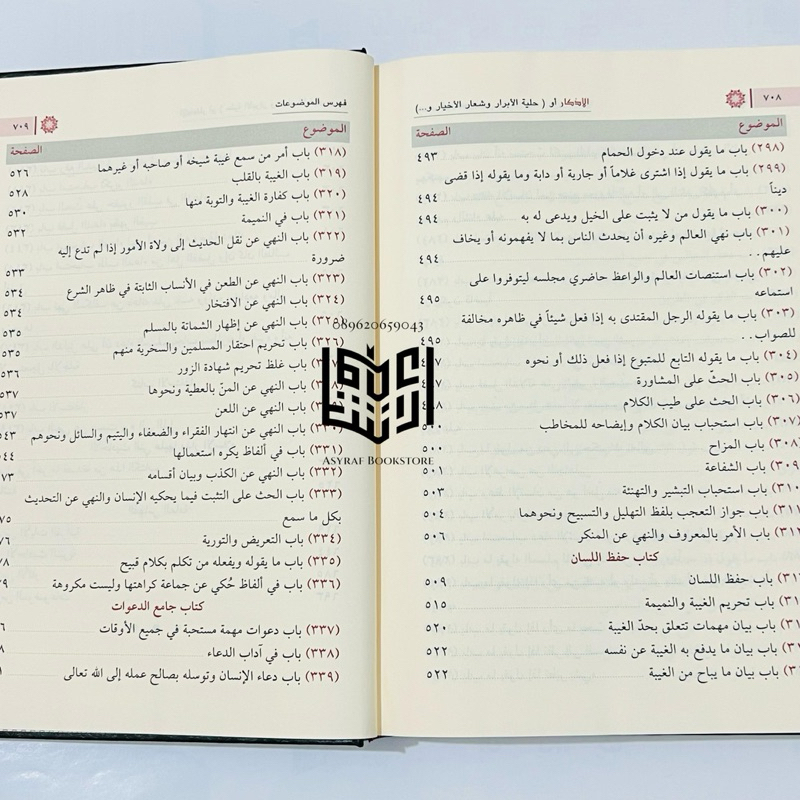 ٧٠٨
الأذكار أو ( حلية الأبرار وشعار الأخيار و...)
الموضوع الصفحة
(٢٩٨) باب ما يقول عند دخول الحمام ٤٩٣
(٢٩٩) باب ما يقول إذا اشترى غلاماً أو جارية أو دابة وما يقوله إذا قضى
ديناً ٤٩٤
(٣٠٠) باب ما يقول من لا يثبت على الخيل ويدعى له به ٤٩٤
(٣٠١) باب نهي العالم وغيره أن يحدث الناس بما لا يفهمونه أو يخاف
عليهم.. ٤٩٤
(٣٠٢) باب استنصات العالم والواعظ حاضري مجلسه ليتوفروا على
استماعه ٤٩٥
(٣٠٣) باب ما يقوله الرجل المقتدى به إذا فعل شيئاً في ظاهره مخالفة
للصواب.. ٤٩٥
(٣٠٤) باب ما يقوله التابع للمتبوع إذا فعل ذلك أو نحوه
(٣٠٥) باب الحثّ على المشاورة
(٣٠٦) باب الحث على طيب الكلام
(٣٠٧) باب استحباب بيان الكلام وإيضاحه للمخاطب ٥٠٠
٣٠٨) باب المزاح ٥٠٠
٣٠٩) باب الشفاعة ٥٠١
٣١٠) باب استحباب التبشير والتهنئة ٥٠٣
٣١١) باب جواز التعجب بلفظ التهليل والتسبيح ونحوهما ٥٠٤
٣١٢) باب الأمر بالمعروف والنهي عن المنكر ٥٠٦
كتاب حفظ اللسان
باب حفظ اللسان ٥٠٩
باب تحريم الغيبة والنميمة ٥١٥
باب بيان مهمات تتعلق بحدّ الغيبة ٥٢٠
باب بيان ما يدفع به الغيبة عن نفسه ٥٢٢
باب بيان ما يباح من الغيبة ٥٢٢
فهرس الموضوعات
٧٠٩
الموضوع الصفحة
(٣١٨) باب أمر من سمع غيبة شيخه أو صاحبه أو غيرهما ٥٢٦
(٣١٩) باب الغيبة بالقلب ٥٢٨
(٣٢٠) باب كفارة الغيبة والتوبة منها ٥٣٠
(٣٢١) باب في النميمة ٥٣٢
(٣٢٢) باب النهي عن نقل الحديث إلى ولاة الأمور إذا لم تدع إليه
ضرورة ٥٣٣
(٣٢٣) باب النهي عن الطعن في الأنساب الثابتة في ظاهر الشرع ٥٣٤
(٣٢٤) باب النهي عن الافتخار ٥٣٤
(٣٢٥) باب النهي عن إظهار الشماتة بالمسلم ٥٣٥
(٣٢٦) باب تحريم احتقار المسلمين والسخرية منهم ٥٣٥
باب غلظ تحريم شهادة الزور ٥٣٦
باب النهي عن المنّ بالعطية ونحوها ٥٣٧
باب النهي عن اللعن ٥٣٧
باب النهي عن انتهار الفقراء والضعفاء واليتيم والسائل ونحوهم ٥٤٣
(٣٣١) باب في ألفاظ يكره استعمالها ٥٤٤
(٣٣٢) باب النهي عن الكذب وبيان أقسامه ٧٣
(٣٣٣) باب الحث على التثبت فيما يحكيه الإنسان والنهي عن التحديث
بكل ما سمع ٧٥
(٣٣٤) باب التعريض والتورية ٧٦
(٣٣٥) باب ما يقوله ويفعله من تكلم بكلام قبيح ٧٨
(٣٣٦) باب في ألفاظ حُكي عن جماعة كراهتها وليست مكروهة ٩
كتاب جامع الدعوات
(٣٣٧) باب دعوات مهمة مستحبة في جميع الأوقات ٦
(٣٣٨) باب في آداب الدعاء ٨
(٣٣٩) باب دعاء الإنسان وتوسله بصالح عمله إلى الله تعالى ١
089620659043
ASYRAF BOOKSTORE